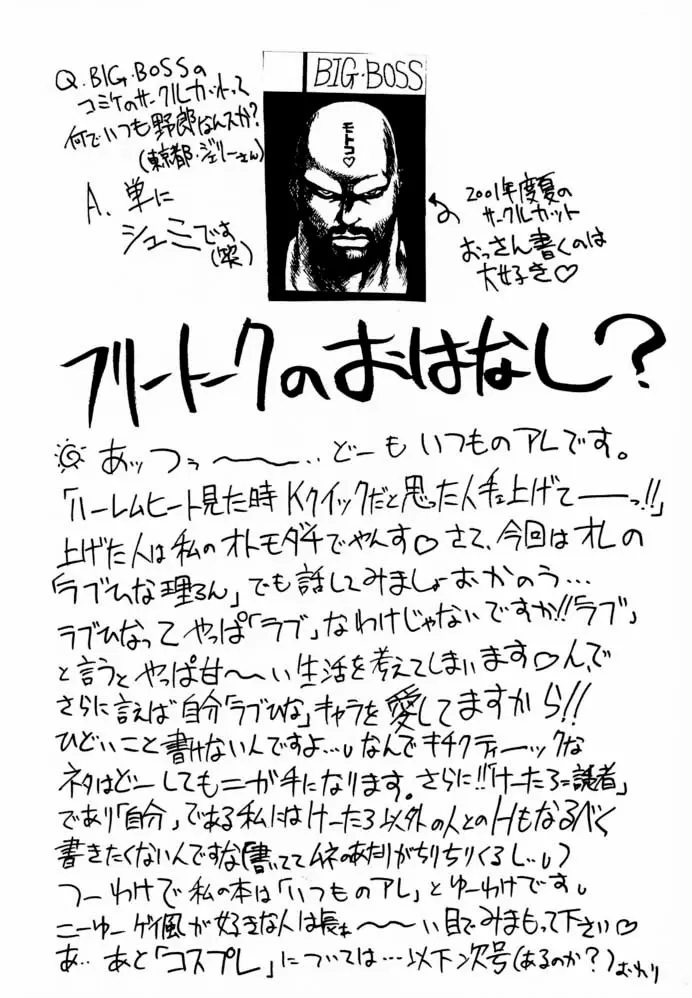 Q.BIG・BOSSの
コミケのサークルカットって
何でいつも野郎なんスか?
(東京都・ジェリーさん)
A. 単に
シュミです
(笑)
BIG・BOSS
モトコ♡
2001年度夏の
サークルカット
おっさん書くのは
大好き♡
フリートークのおはなし?
あッつぅ〜〜‥どーも いつものアレです。
「ハーレムヒート見た時 Kクイックだと思った人手上げてーーっ!!」
上げた人は私のオトモダチでやんす♡ さて、今回はオレの
「ラブひな理ろん」でも話してみましょおかのう…
ラブひなって やっぱ「ラブ」なわけじゃないですか!!「ラブ」
と言うと やっぱ甘〜〜い 生活を考えてしまいます♡んで
さらに言えば 自分「ラブひな」キャラを愛してますから!!
ひどいこと書けないんですよ…。なんでキチクティーックな
ネタはどーしてもニガ手になります。さらに!!「けーたろ=読者」
であり「自分」である私には けーたろ以外の人とのHもなるべく
書きたくないんですな(書いててムネのあたりがちりちりくるし‥。)
つーわけで 私の本は「いつものアレ」とゆーわけです。
こーゆー ゲイ風が好きな人は長ぁ〜〜い目でみまもって下さい♡
あ‥あと「コスプレ」については…以下次号(あるのか?)おわり